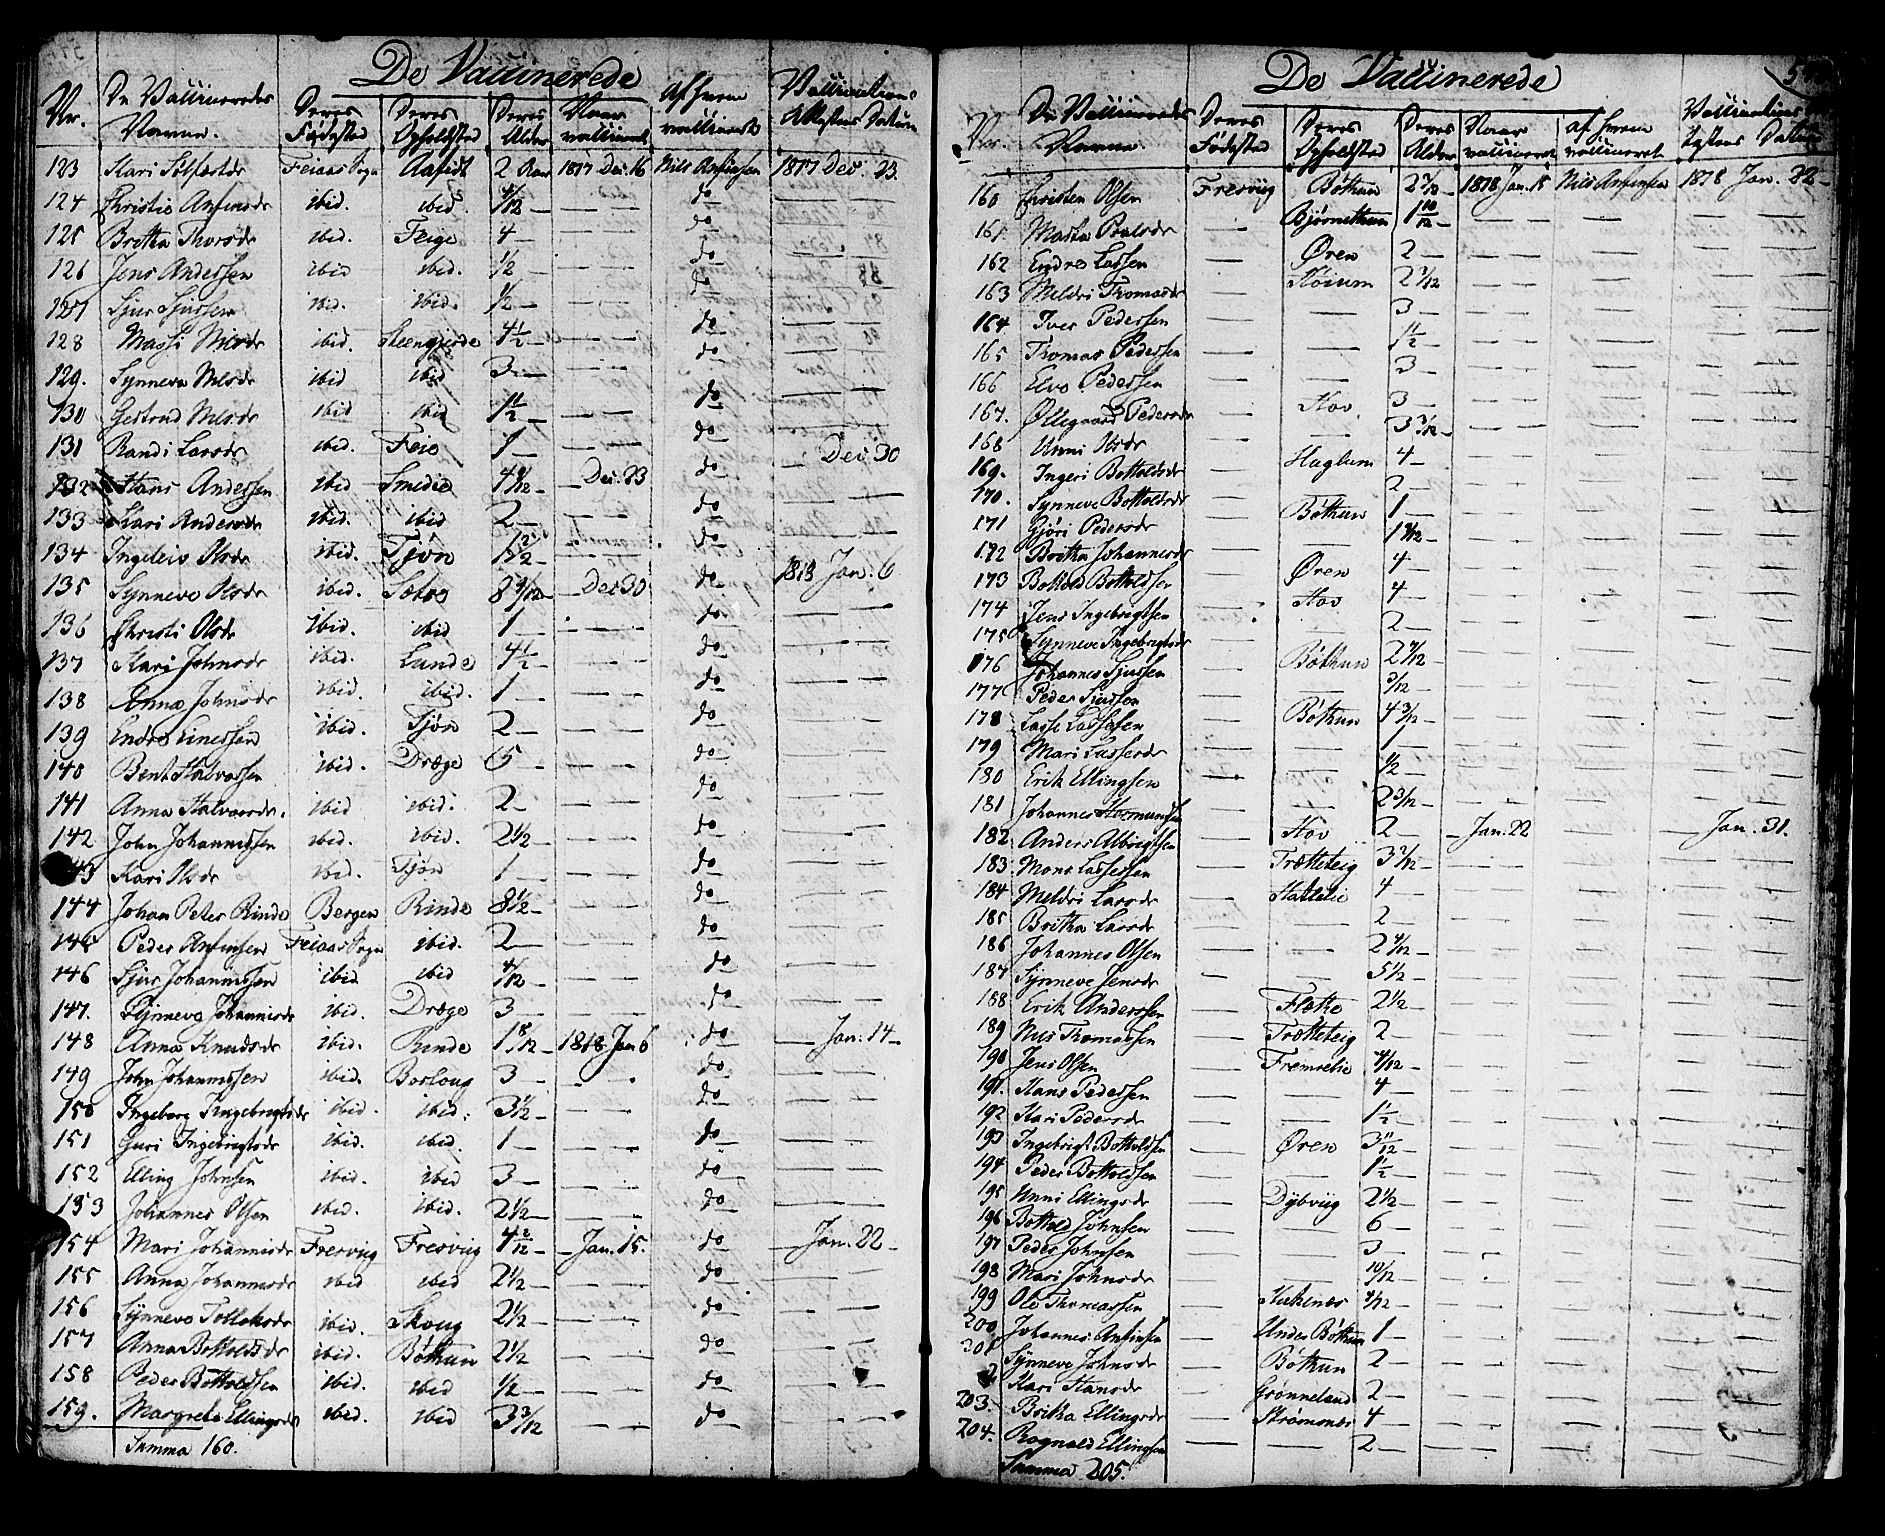 De Vaccinerede
Nr.
De Vaccineredes Navne.
Deres Fødested
Deres Opholdsted
Deres Alder
Naar vaccineret
Af hvem vaccineret
Vaccinations Attestens Datum
123 Kari Feiaas Sogn 2 Aar 1817 Dec. 16 Nils Anfinsen 1817 Dec. 23.
124 Christie Anfinsdr ibid. ibid. 4/12 — — — do — —
125 Brotha Thorsdr ibid. Feige 4 — — — do — —
126 Jens Andersen ibid ibid. 1/2 — — — do — —
127 Sjur Sjursen ibid. ibid. 1/2 — — — do — —
128 Massi Nilsdr ibid. Steengierde 4 1/2 — — — do — —
129. Synneva Nilsdr ibid ibid 3 — — — do — —
130 Gertrud Nilsdr ibid ibid 1 1/2 — — — do — —
131 Randi Larsdr ibid. Feie 1 — — — do — Dec. 30
132 Hans Andersen ibid Smedie 4 — Dec. 23 do — —
133 Kari Andersdr ibid. ibid 2 — — — do — —
134 Ingeleiv Olsdr ibid. Tjøn — — — do — —
135 Synneve Olsdr ibid. 8 — Dec 30 do 1818 Jan. 6
136 Christi Olsdr ibid. ibid 1 — — — do — —
137 Kari Johnsdr ibid. Lunde 4 1/2 — — — do — —
138 Anna Johnsdr ibid. ibid. 1 — — — do — —
139 Endre Einersen ibid. Tjøn 2 — — — do — —
140 Bent Halvorsen ibid. Dræge 5 — — — do — —
141 Anna Halvorsdr. ibid ibid. 2 — — — do — —
142 John Johannessen ibid. ibid. 2 1/2 — — — do — —
143 Kari Olsdr ibid. Tjøn 1 — — — do — —
144 Johan Peter Rinde Bergen Rinde 8 1/2 — — — do — —
145 Peder Anfinsen Feiaas Sogn ibid. 2 — — — do — —
146 Sjur Johannessen ibid ibid 4/12 — — — do — —
147. Synneve Johannisdr ibid. Dræge 3 — — — do — —
148 Anna Knudsdr ibid. Rinde 1 8/12 — 1818 Jan 6 do — Jan. 14 —
149 John Johannessen ibid. Borlaug 3 — — — do — —
150 Ingeborg Ingebrigtsdr ibid. ibid. 3 1/2 — — — do — —
151 Guri Ingebrigtsdr ibid. ibid. 1 — — — do — —
152 Elling Johnsen ibid. ibid 3 — — — do — —
153 Johannes Olsen ibid. ibid. 2 1/2 — — — do — —
154 Mari Johannisdr Fresviig Fresviig 4 2/12 — Jan. 15. do — Jan. 22 —
155 Anna Johannisdr ibid ibid 2 1/2 — — — do — —
156 Synneve Tollaksdr ibid. Skoug 2 1/2 — — — do — —
157 Anna Botholdsdr ibid. Bøthun 2 1/2 — — do — —
158 Peder Botholdsen ibid. ibid 1/2 — — — do — —
159. Margrete Ellingsdr ibid. ibid 3 3/12 — — do — —
Summa 160.
De Vaccinerede
Nr.
De Vaccineredes Navne
Deres Fødested
Deres Opholdsted
Deres Alder
Naar vaccineret
af hvem vaccineret
Vaccinations Attestens Datum
160 Christen Olsen Fresviig Bøthun 2 — 1818 Jan. 15 Nils Anfinsen 1818 Jan. 22 —
161. Martha Poulsdr — Bjørnethun 1 10/12 — — — — —
162 Endre Lassen — Øren 2 — — — — —
163 Meldri Thomasdr — 2 — — — — —
164 Iver Pedersen — — 3 — — — — —
165 Thomas Pedersen — — 1 1/2 — — — — —
166 Elve Pedersen — — 3 — — — — —
167. Øllegaard Pedersdr — Hov 3 — — — — —
168 Unni Olsdr — — 3 — — — — —
169. Ingeri Botholdsdr — Huglum 4 — — — — —
170. Synneve Botholdsdr — — 2 — — — — —
171 Gjøri Pedersdr — Bøthun 1 — — — — —
172 Brotha Johannesdr — — 1 — — — — —
173 Bothold Botholdsen — Øren 4 — — — — —
174 Jens Ingebrigtsen — Hov 4 — — — — —
175 Synneve Ingebrigtsdr — — 2 — — — — —
176 Johannes Sjursen — Bøthun 2 — — — — —
177 Peder Sjursen — — 3/12 — — — — —
178 Lasse Lassesen — Bøthun 4 3/12 — — — — —
179 Mari Lassesdr — — 1 — — — — —
180 Erik Ellingsen — — 1/2 — — — — —
181 Johannes Hermundsen — — 2 3/12 — — — — —
182 Anders Albrigtsen — Hov 2 — Jan. 22 — — Jan. 31.
183. Mons Lassesen — Trætteteig 3 — — — — —
184 Meldri Larsdr — Hattelie 4 — — — — —
185 Britha Larsdr — — 2 — — — — —
186 Johannes Olsen — — 2 — — — — —
187 Synneve Jensdr — — 5 1/2 — — — — —
188 Erik Andersen — Flætte 2 1/2 — — — — —
189 Nils Thomassen — Trætteteig 2 — — — — —
190 Jens Olsen — Fremrelie — — — — —
191. Hans Pedersen — — 4 — — — — —
192 Kari Pedersdr — — 1 1/2 — — — — —
193 Ingebrigt Botholdsen — Øren 3 11/12 — — — — —
194 Peder Botholdsen — — 1 1/2 — — — — —
195 Unni Ellingsdr — Dybviig 2 1/2 — — — — —
196 Bothold Johnsen — — 6 — — — — —
197 Peder Johnsen — — 3 — — — — —
198 Mari Johnsdr — — 10/12 — — — — —
199 Ole Thomassen — — — — — —
200 Johannes Anfinsen — Under Bøthun 1 — — — — —
201 Synneve Johnsdr — Bøthun 2 — — — — —
2 Kari Hansdr — Grønneland 2 — — — — —
203. Britha Ellingsdr — Strømsnes 4 — — — — —
204. Ragnald Ellingsen — — 2 — — — — —
Summa 205.